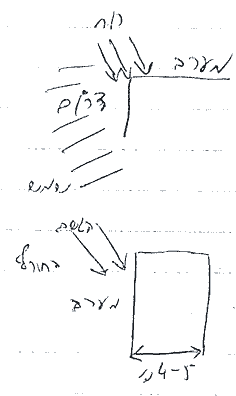 רוח
מערב
דרום
שמש
הגשם
בחורף
מערב
4-5 מ'